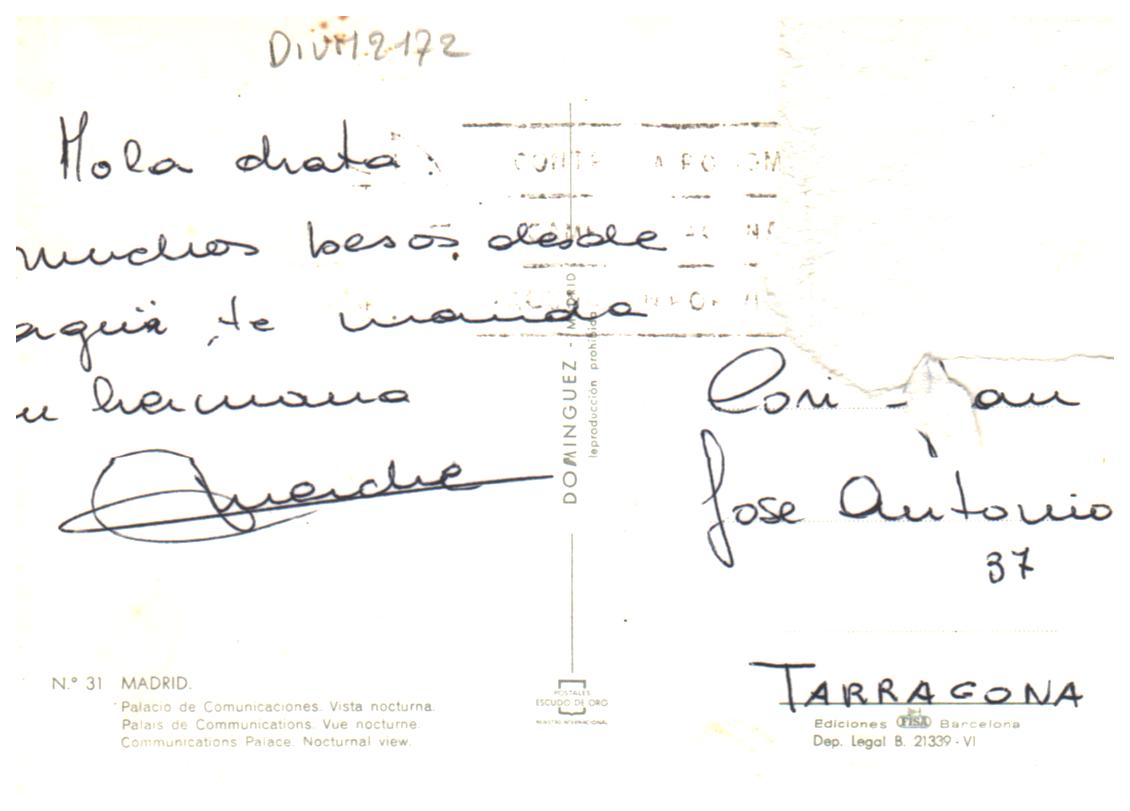 DIVM.2172
Hola chata:
muchos besos desde
aqui, te manda
u hermana
Merche
DOMINGUEZ - MADRID
reproducción prohibida
Cori
Jose Antonio
37
TARRAGONA
N.º 31 MADRID.
Palacio de Comunicaciones. Vista nocturna.
Palais de Communications. Vue nocturne.
Communications Palace. Nocturnal view.
POSTALES
ESCUDO DE ORO
REGISTRO INTERNACIONAL
Ediciones FISA Barcelona
Dep. Legal B. 21339 - VI